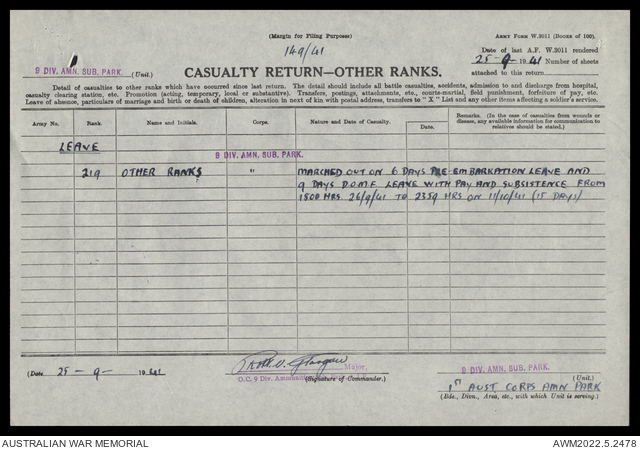 (Margin for Filing Purposes)
ARMY FORM W.3011 (BOOKS OF 100).
149/41
Date of last A.F. W.3011 rendered
25-9-1941 Number of sheets
attached to this return
9 DIV. AMN. SUB. PARK. (Unit.)
CASUALTY RETURN—OTHER RANKS.
Detail of casualties to other ranks which have occurred since last return. The detail should include all battle casualties, accidents, admission to and discharge from hospital,
casualty clearing station, etc. Promotion (acting, temporary, local or substantive). Transfers, postings, attachments, etc., court-martial, field punishment, forfeiture of pay, etc.
Leave of absence, particulars of marriage and birth or death of children, alteration in next of kin with postal address, transfers to "X" List and any other items affecting a soldier's service.
Army No. Rank. Name and Initials. Corps. Nature and Date of Casualty. Date. Remarks. (In the case of casualties from wounds or
disease, any available information for communication to
relatives should be stated.)
LEAVE
9 DIV. AMN. SUB. PARK.
219 OTHER RANKS " MARCHED OUT ON 6 DAYS PRE-EMBARKATION LEAVE AND
9 DAYS D.O.M.F. LEAVE WITH PAY AND SUBSISTENCE FROM
1800 HRS. 26/9/41 TO 2359 HRS ON 11/10/41 (15 DAYS)
(Date 25-9-1941
Major,
O.C. 9 Div. Ammunition
(Signature of Commander.)
9 DIV. AMN. SUB. PARK.
(Unit.)
1ST AUST CORPS AMN PARK
(Bde., Divn., Area, etc., with which Unit is serving.)
AUSTRALIAN WAR MEMORIAL
AWM2022.5.2478